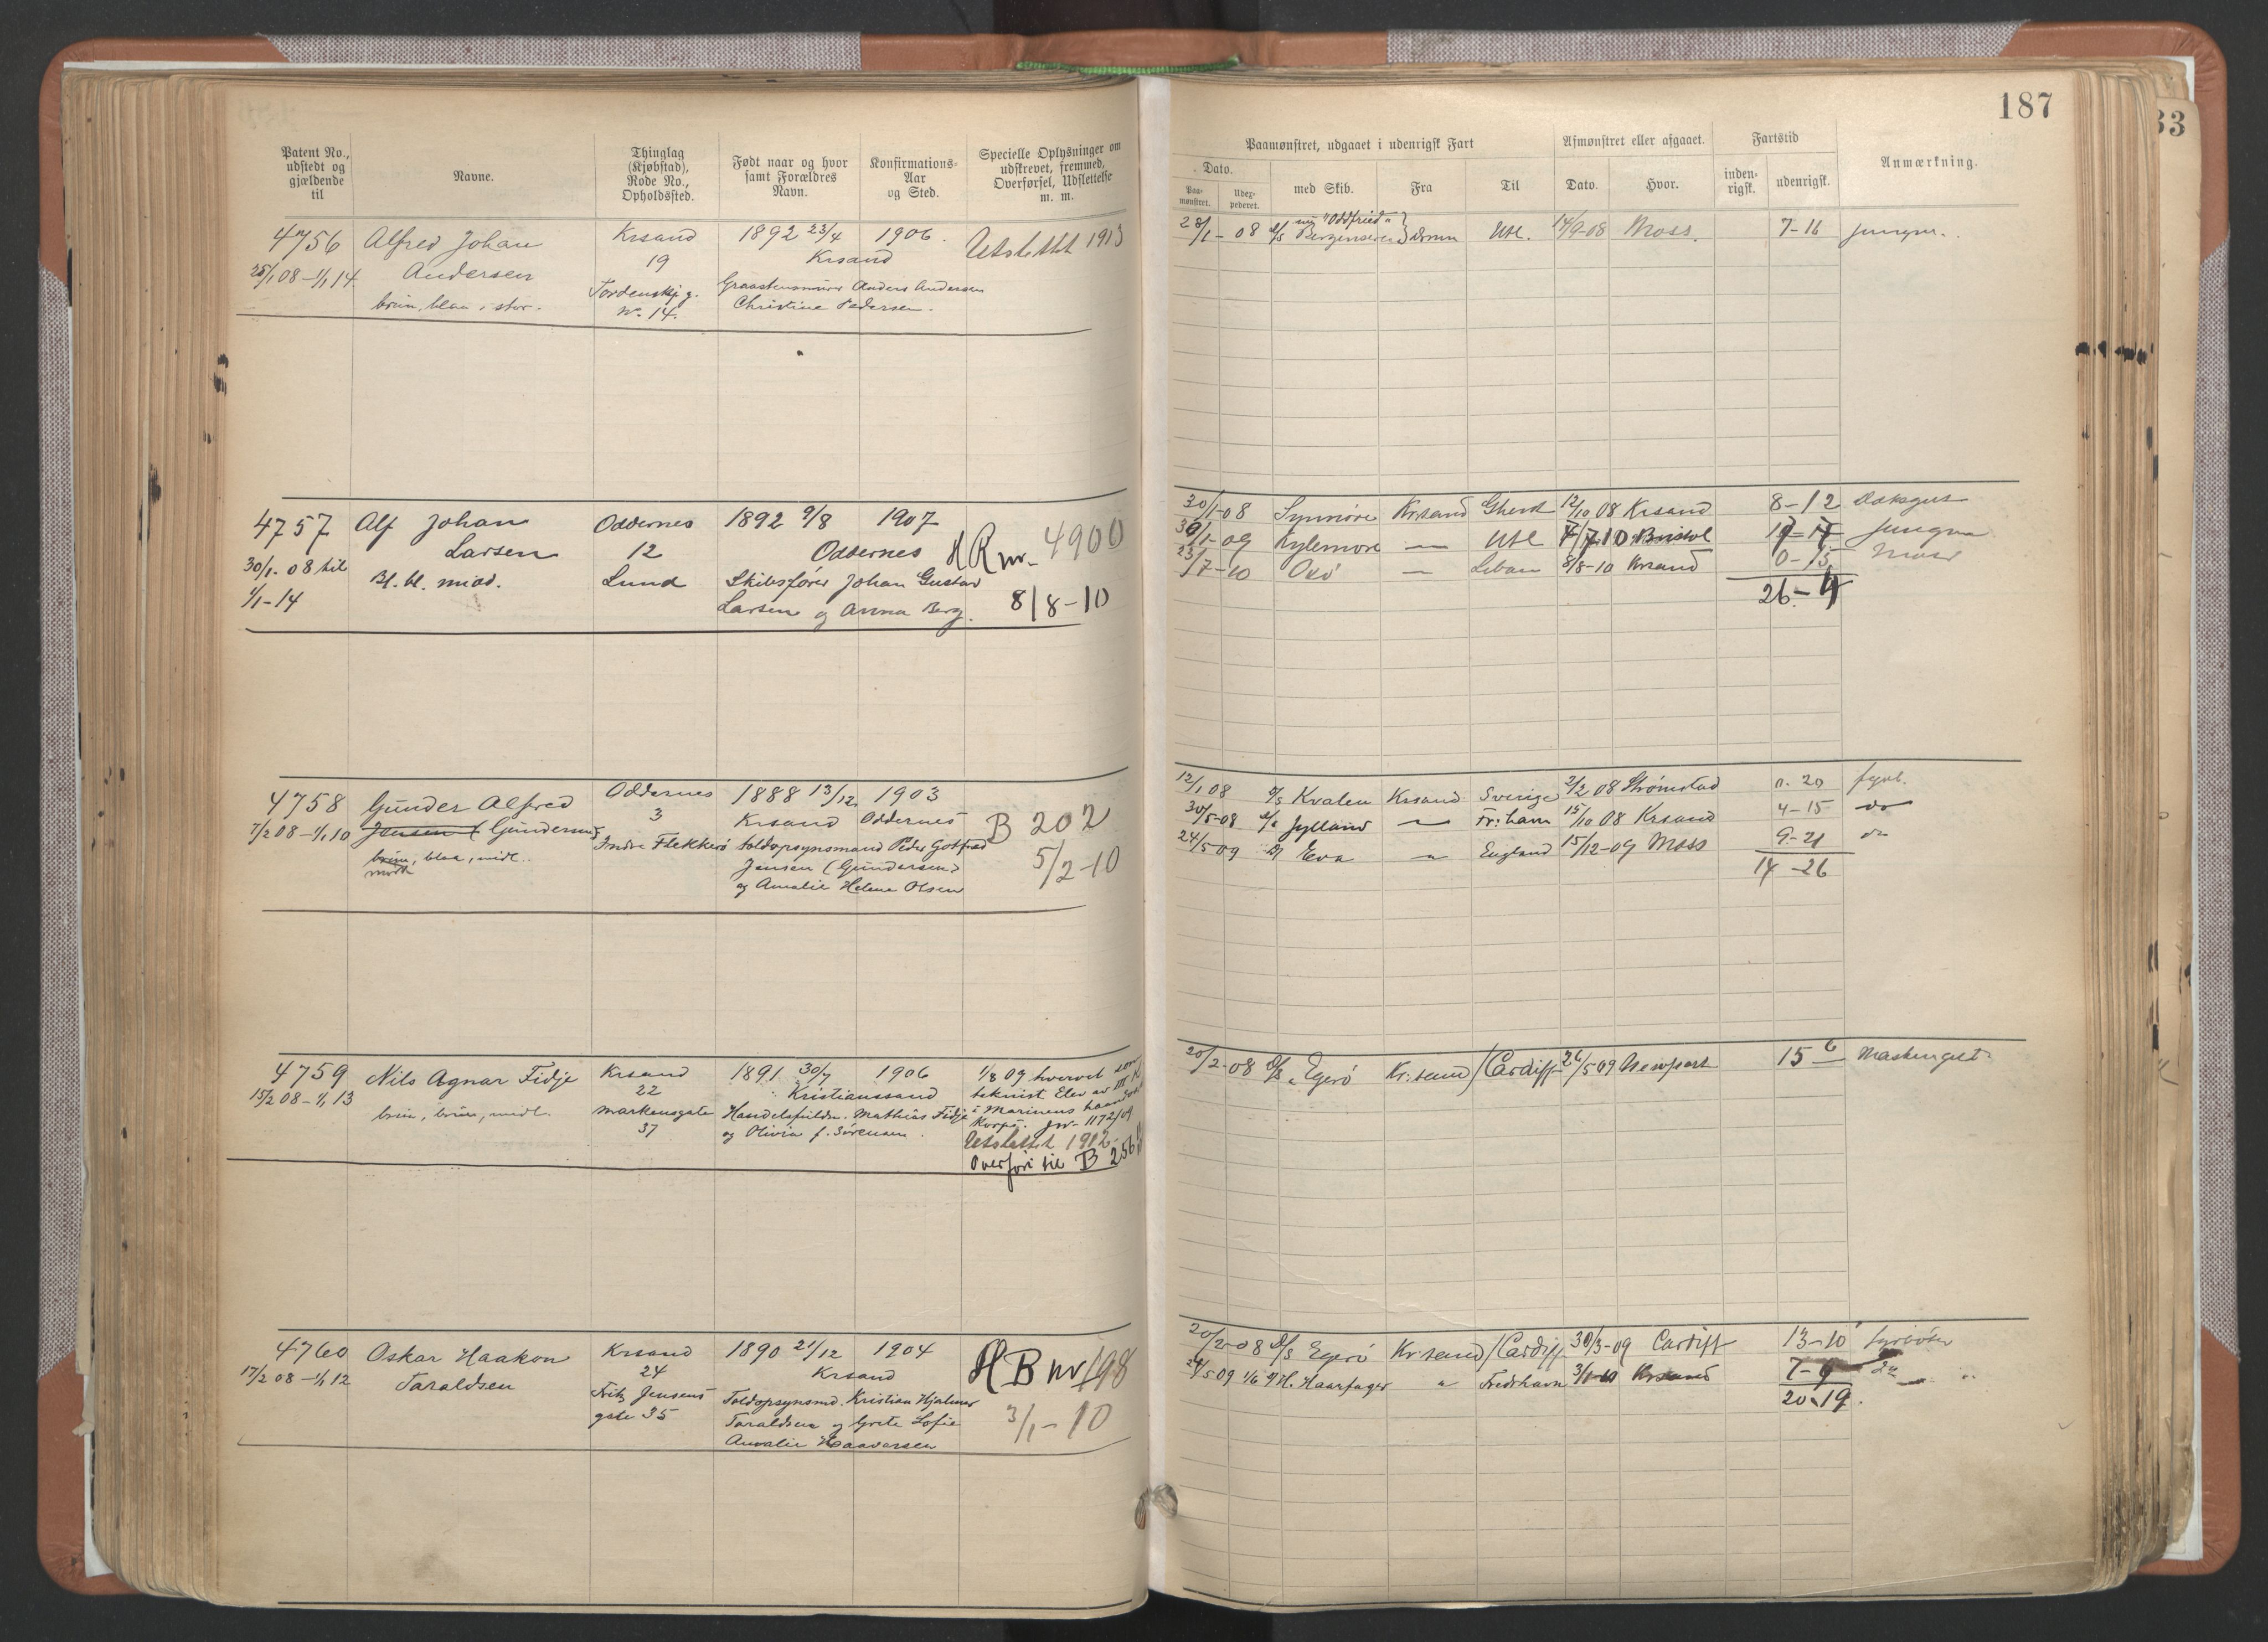 187
33
Patent No., udstedt og gjældende til
Navne.
Thinglag (Kjøbstad), Rode No., Opholdssted.
Født naar og hvor samt Forældres Navn.
Konfirmations-Aar og Sted.
Specielle Oplysninger om udskrevet, fremmed, Overførsel, Udslettelse m. m.
Paamønstret, udgaaet i udenrigsk Fart
Afmønstret eller afgaaet.
Fartstid
Anmærkning.
Dato.
Paa-mønstret.
Udex-pederet.
med Skib.
Fra
Til
Dato.
Hvor.
inden-rigsk.
udenrigsk.
4756 Alfred Johan Krsand 1892 23/4 1906. Utslettet 1913
25/1 08 – 1/1 14 Andersen 19 Krsand
brun, blaa, stor. Tordenskj. g. Graastensmurer Anders Andersen
No. 14. Christine Pedersen.
28/1 - 08 "Oddfried" Utl. 14/9-08 Moss. 7-16 jungm.
4757 Alf Johan Oddernes 1892 9/8 1907
Larsen 12 Oddernes HR nr. 4900
30/1. 08 til Bl. bl. midd. Lund Skibsfører Johan Gustav
1/1-14 Larsen og Anna Berg. 8/8-10
30/1-08 Synmøre Krsand Ghent 12/10 08 Krsand 8-12 Dæksgut
30/1-09 Kylemore — Utl 7/7 10 Bristol 17-17 Jungm
23/7-10 Oxö — Libau 8/8-10 Krsand 0-15 Mass
26-4
4758 Gunder Alfred Oddernes 1888 13/12 1903
7/2 08 – 1/1 10 Jensen (Gundersen) 3 Krsand Oddernes B 202
brun, blaa, midl. Indre Flekkerö Toldopsynsmand Peder Gotfred
mørk Jensen (Gundersen) 5/2-10
og Amalie Helene Olsen
12/1 08 d/s Kvalen Krsand Sverige 2/2 08 Strömstad 0. 20 fyrb.
30/5-08 d/s Jylland — Fr: havn 15/10 08 Krsand 4-15 do
24/5-09 Eva " England 15/12-09 Moss 9-21 do
14-26
4759 Nils Agnar Fidje Krsand 1891 30/7 1906 1/8 09 hvervet som
15/2 08 – 1/1 13 22 Kristianssand teknist Elev av III Kl
brun, brun, midl. Markensgate Handelsfuldm. Mathias Fidje i Marinens haandv.
37 og Olivia f. Sörensen. Korps. Jnr. 1172/09
Utslettet 1912
Overfört til B 256
20/2-08 d/s Egerö Kr:sand /Cardiff 26/5 09 Newport 15 6 Maskingut
4760 Oskar Haakon Krsand 1890 21/12 1904
17/2 08 – 1/1 12 Taraldsen 24 Krsand HB nr 198
Fritz Jensens Toldopsynsmd. Kristian Hjalmar
gate 35 Taraldsen og Grete Sofie 3/1-10
Amalie Haavorsen
20/2-08 d/s Egerö Kr:sand /Cardiff 30/3-09 Cardiff 13-10 fyrböter
24/5 09 1/6 H. Haarfager " Fredrhavn 3/1-10 Krsand 7-9 do
20-19.